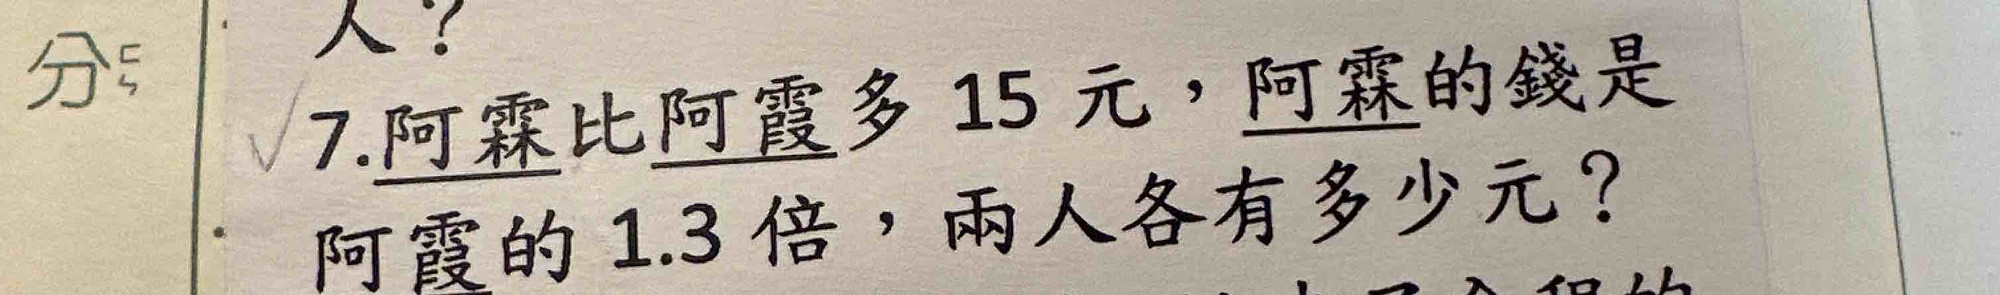 人？
分
7.阿霖比阿霞多 15 元，阿霖的錢是
阿霞的 1.3 倍，兩人各有多少元？